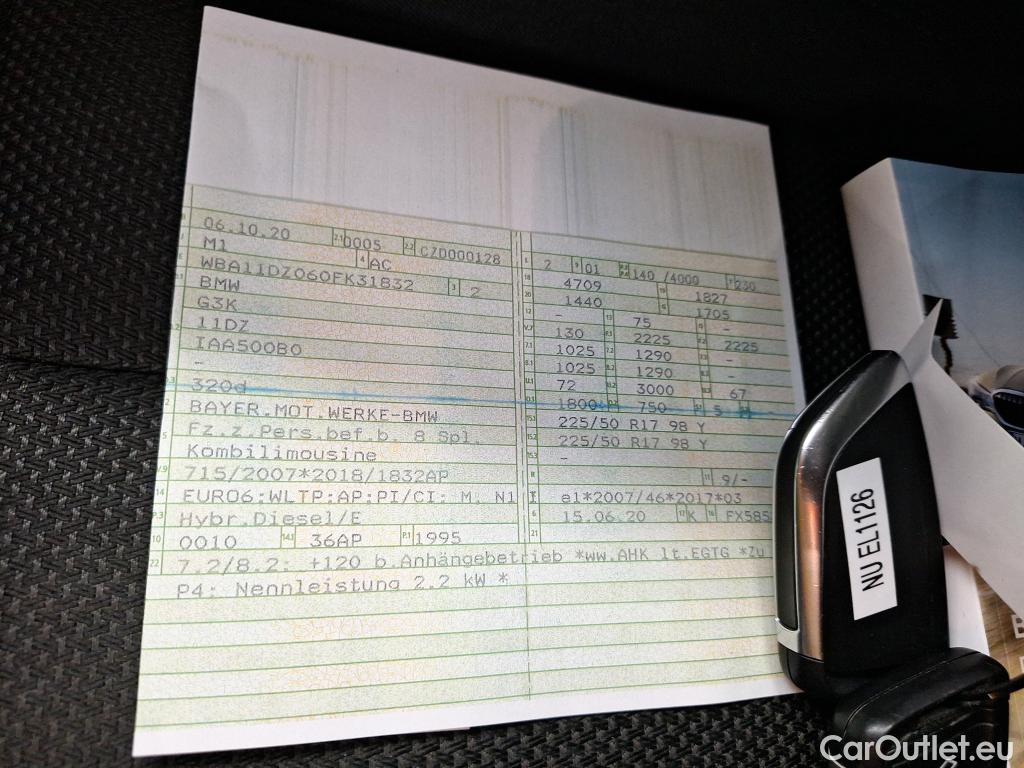 06.10.20 0005 CZ0000128
M1 AC
WBA11DZ060FK31832 2
BMW
G3K
11DZ
IAA500B0
-
320d
BAYER.MOT.WERKE-BMW
Fz.z.Pers.bef.b. 8 Spl.
Kombilimousine
715/2007*2018/1832AP
EURO6;WLTP;AP;PI/CI; M, N1
Hybr.Diesel/E
0010 36AP 1995
2 01 140 /4000 230
4709 1827
1440 1705
- 75 -
130 2225 2225
1025 1290 -
1025 1290 -
72 3000 67
1800 750 5
225/50 R17 98 Y
225/50 R17 98 Y
-
9/-
e1*2007/46*2017*03
15.06.20 K FX585
7.2/8.2: +120 b.Anhängebetrieb *ww.AHK lt.EGTG *Zu
P4: Nennleistung 2.2 kW *
NU EL1126
CarOutlet.eu